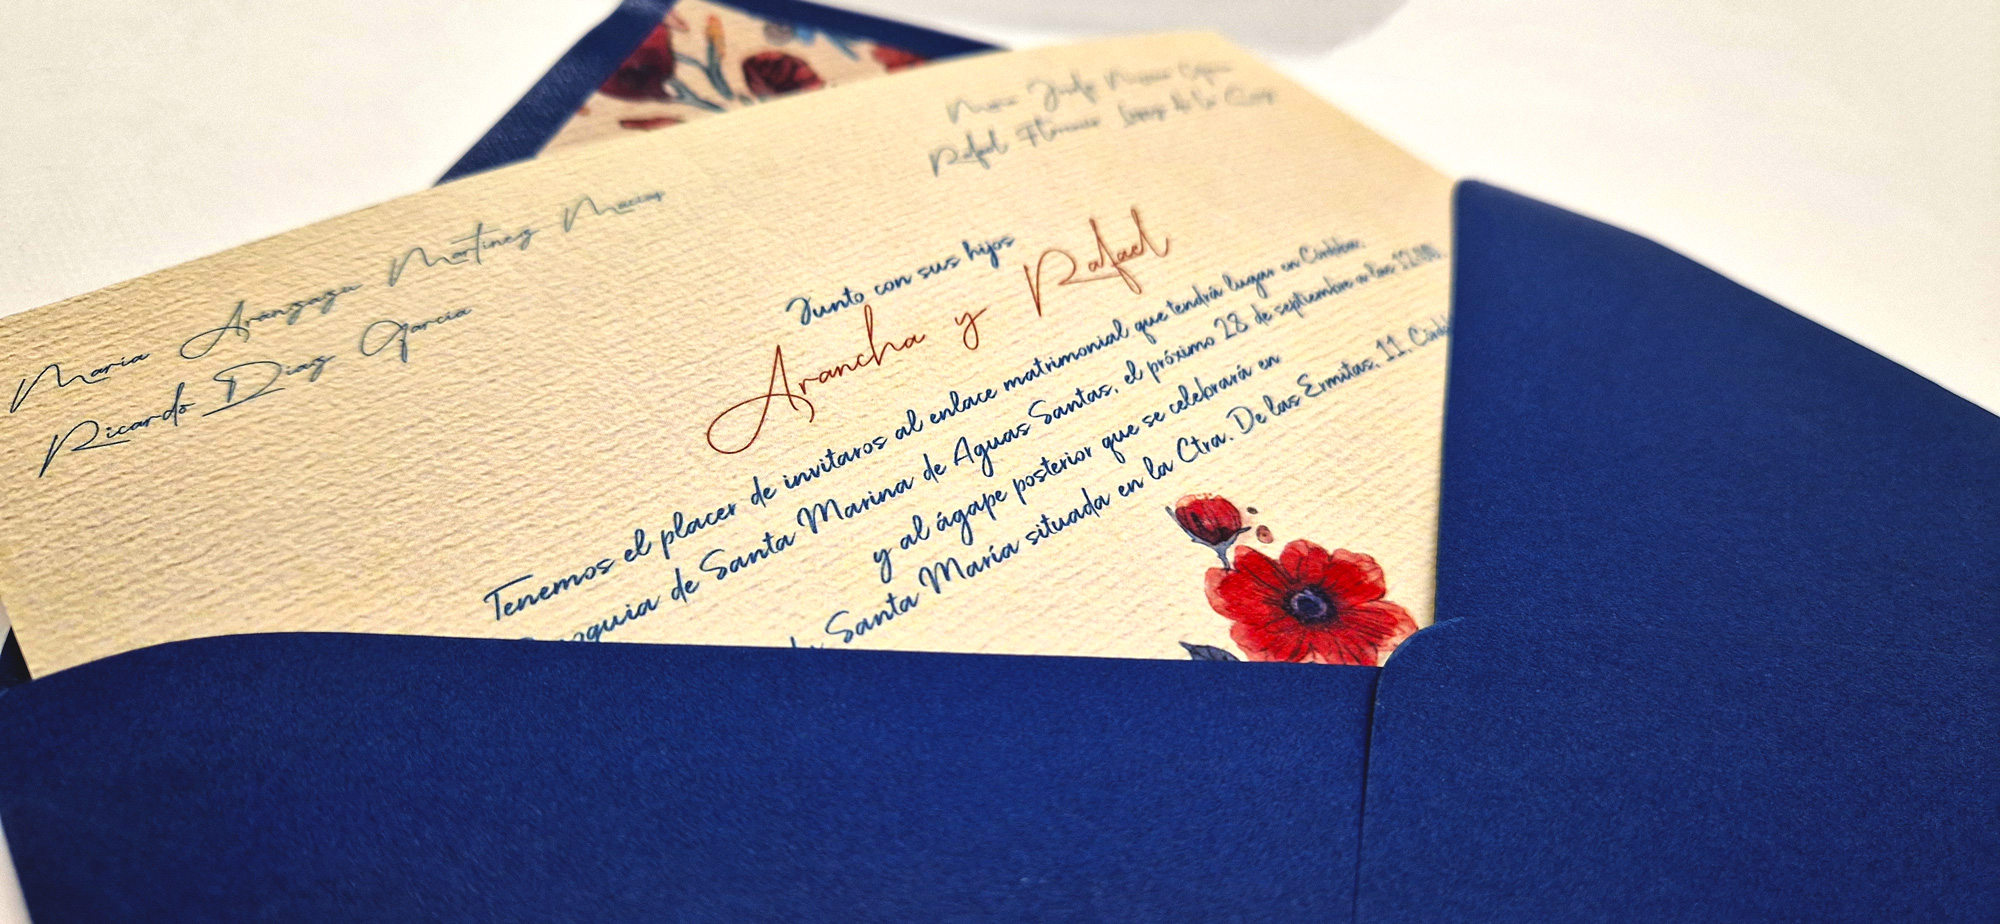 Maria Aranzazu Martinez Macias
Ricardo Diaz Garcia
Rafael
Junto con sus hijos
Arancha y Rafael
Tenemos el placer de invitaros al enlace matrimonial que tendrá lugar en Córdoba,
de Santa Marina de Aguas Santas, el próximo 28 de septiembre a las 12,00.
y al ágape posterior que se celebrará en
Santa María situada en la Ctra. De las Ermitas, 11,